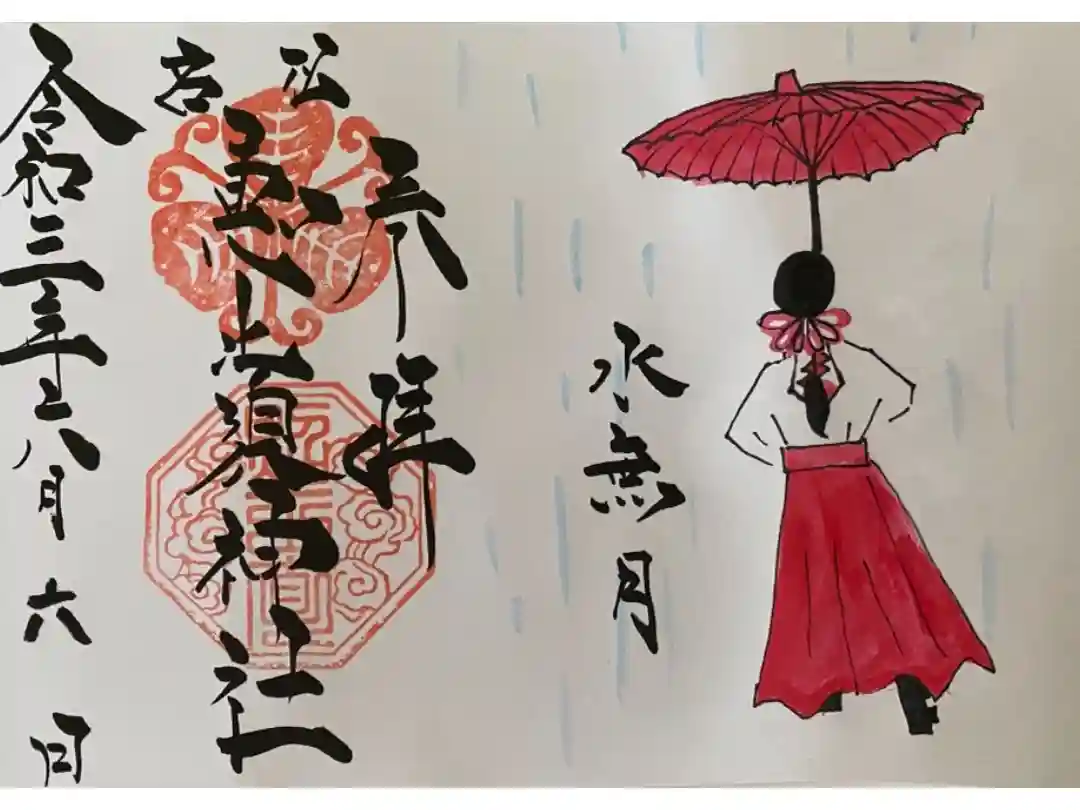 水無月
奉拝
恵比須神社
令和三年六月六日